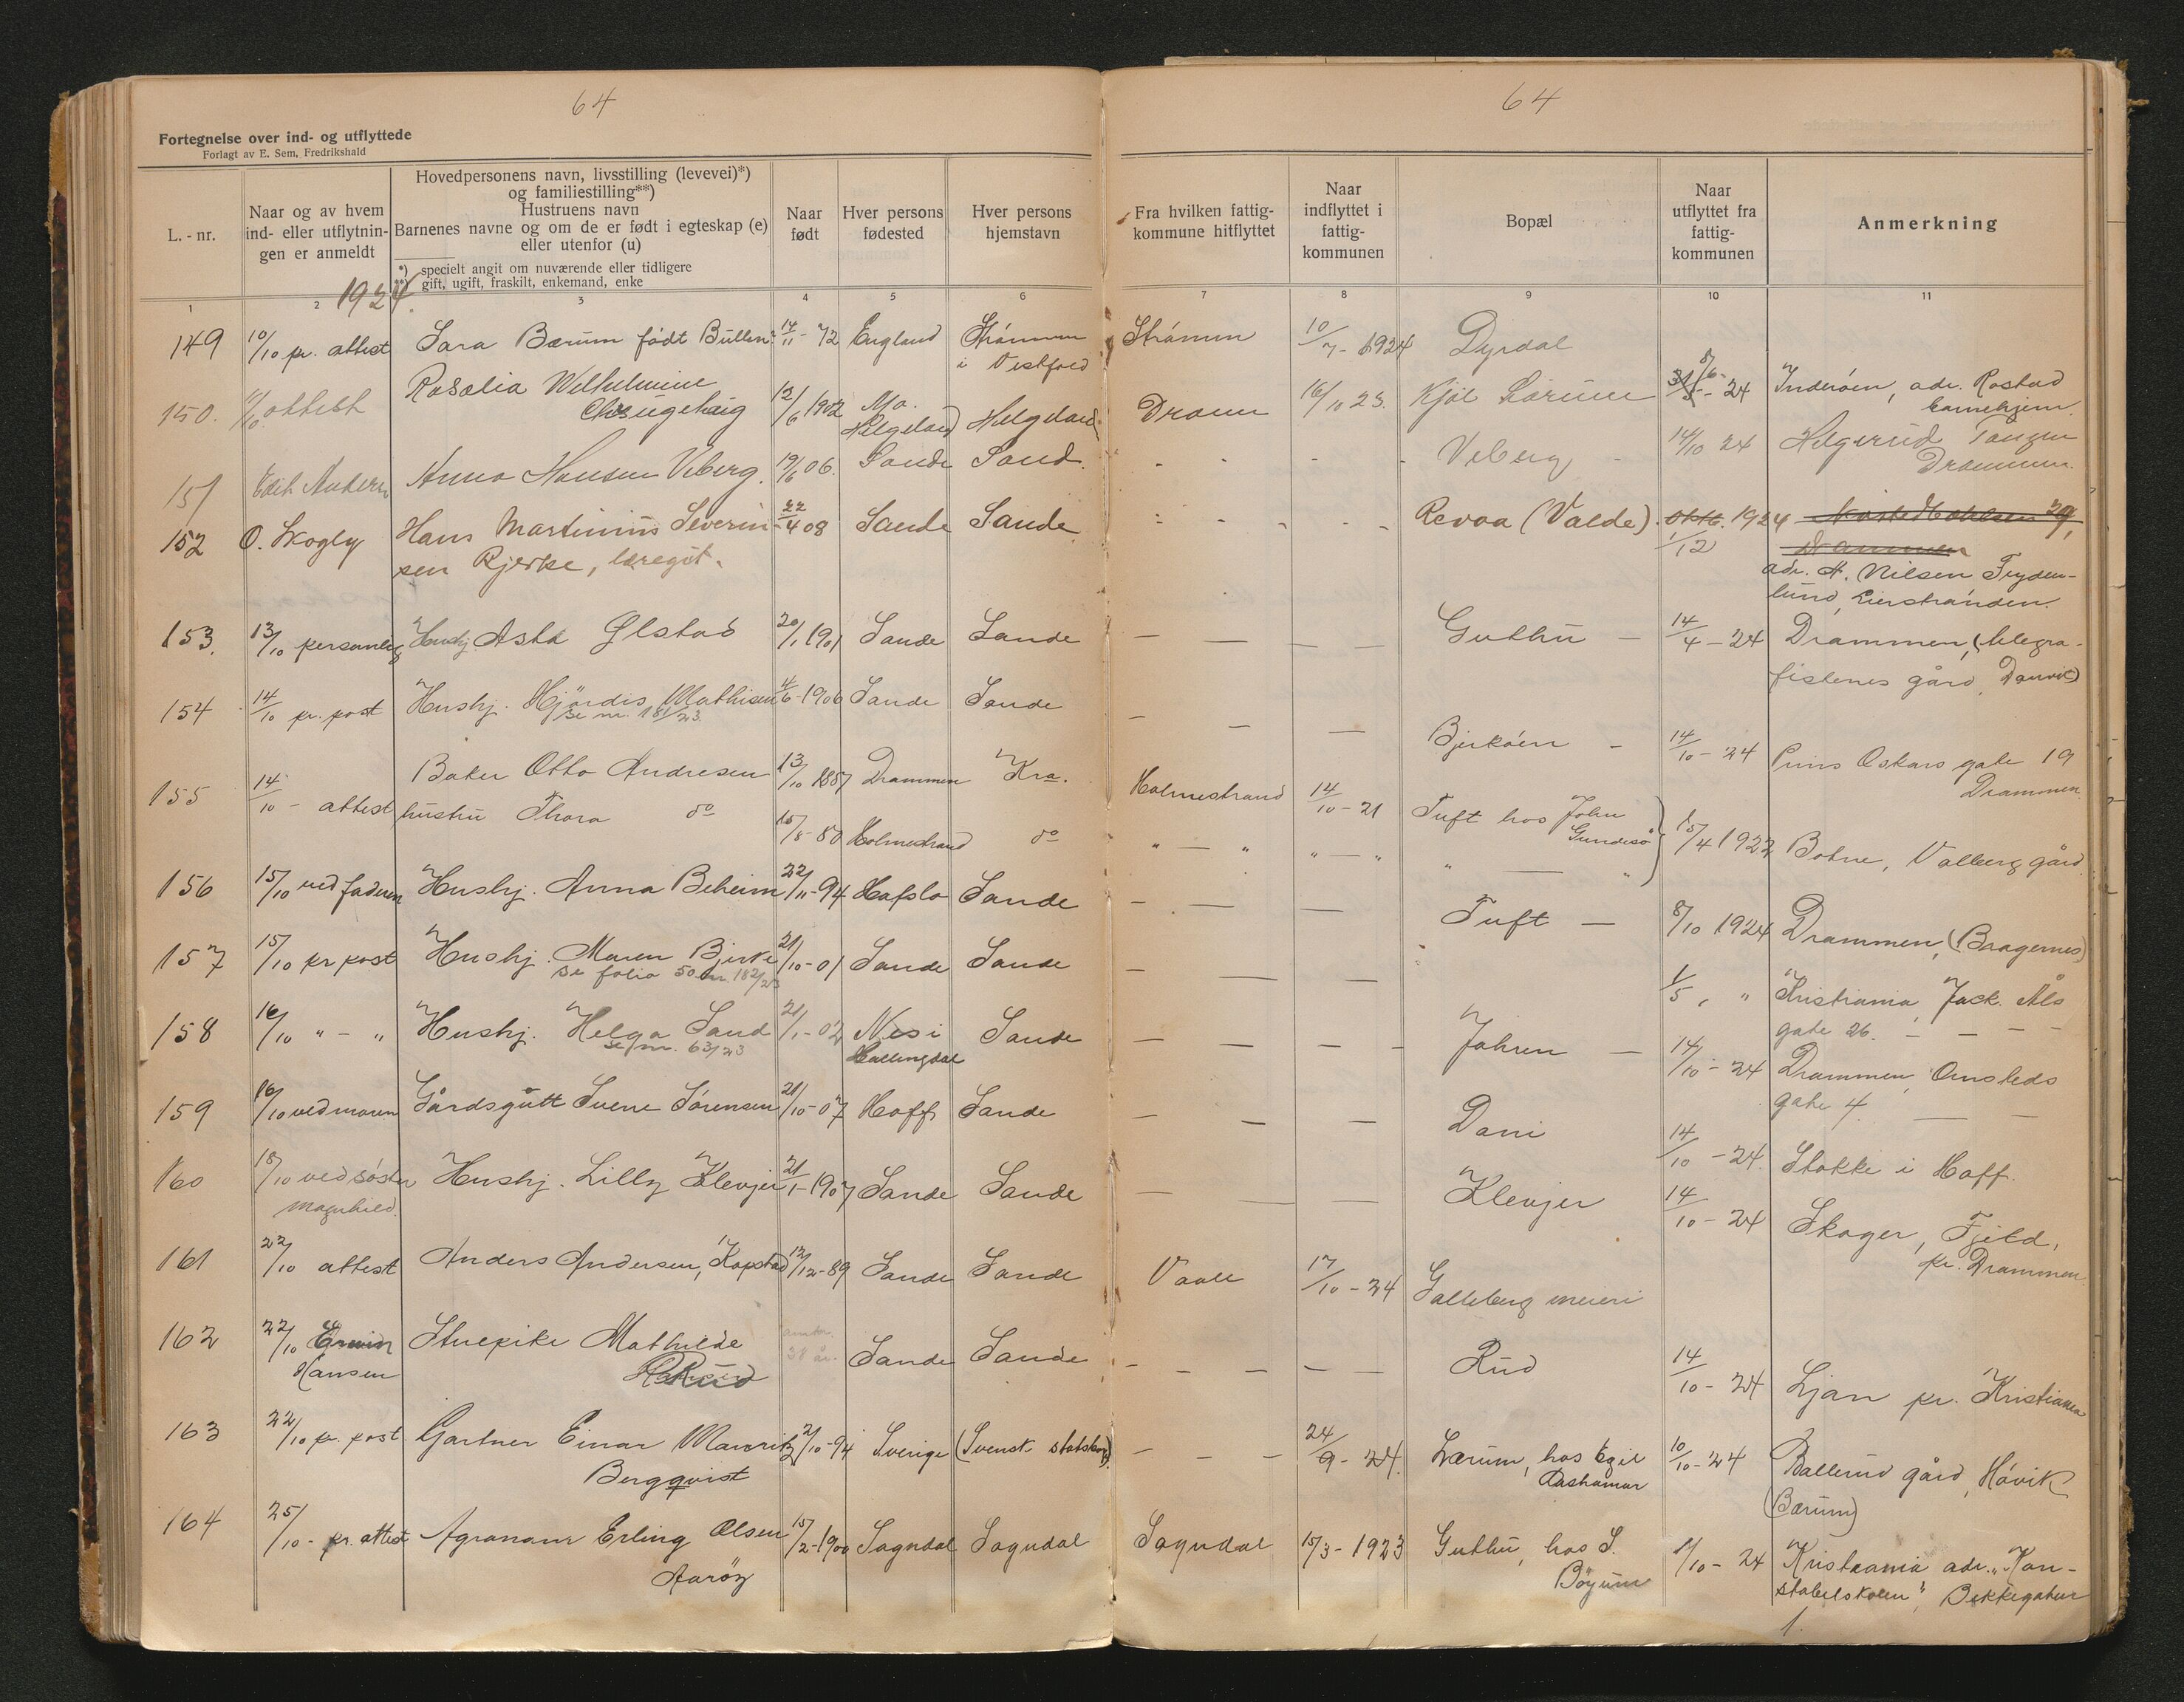 64
Fortegnelse over ind- og utflyttede
Forlagt av E. Sem, Fredrikshald
L. - nr.
Naar og av hvem
ind- eller utflytnin-
gen er anmeldt
Hovedpersonens navn, livsstilling (levevei)*)
og familiestilling**)
Hustruens navn
Barnenes navne og om de er født i egteskap (e)
eller utenfor (u)
*) specielt angit om nuværende eller tidligere
**) gift, ugift, fraskilt, enkemand, enke
Naar
født
Hver persons
fødested
Hver persons
hjemstavn
1 2 3 4 5 6
1924
149 10/10 pr. attest Sara Bærum født Bullen 14/11-72 England Strómm
i Vestfold
150. attest Rosalia Wilhelmine 12/6 1902 Mo. Helgeland
Helgeland
151 Edit Andersen Anna Hansen Viberg. 19/6 06. Sande Sand.
152 O. Skogly Hans Martinius Severin- 22/4 08 Sande Sande
sen Bjerke, læregut.
153. 13/10 personlig Hushj Asta Ølstad 20/1 1901 Sande Sande
154 14/10 pr. post Hushj. Hjördis Mathisen 4/6-1906 Sande Sande
se nr. 181/23.
155 14/10 - attest Baker Otto Andresen 13/10 1887 Drammen Kra.
hustru Thora do 15/8-80 Holmestrand do
156 15/10 ved faderen Hushj. Anna Beheim 22/11-94 Hafslo Sande
157 15/10 pr post Hushj. Maren Bjerke 21/10-01 Sande Sande
se folio 50 nr. 182/23
158 16/10 " - " Hushj. Helga Sand 21/1-02 Nes i Sande
se nr. 63/23 Hallingdal
159 16/10 ved moren Gårdsgutt Svene Sörensen 21/10-07 Hoff Sande
160 18/10 ved søster Hushj. Lilly Klevjer 21/1-1907 Sande Sande
Magnhild.
161 22/10 attest Anders Andersen, Kopstad 12/12-89 Sande Sande
162 22/10 Erwin Stuepike Mathilde 38 år. Sande Sande
Hansen Rud
163 22/10 pr. post Gartner Einar Mauritz 2/10-94 Sverige (Svensk statsborg)
Bergqvist
164 25/10 - pr. attest Agronom Erling Olsen 15/2-1900 Sogndal Sogndal
Aarøy
64
Fra hvilken fattig-
kommune hitflyttet
Naar
indflyttet i
fattig-
kommunen
Bopæl
Naar
utflyttet fra
fattig-
kommunen
Anmerkning
7 8 9 10 11
Strömm 10/7-1924 Dyrdal
Dramn 16/10 23. Kjöl Lørum 24 Inderöen, adr. Rostad
barnehjem.
- - - - Viberg - 14/10 24 Helgerud Tangen
Drammen.
- - - - Revaa (Valde). Oktb. 1924
1/12 Drammen
adr. H. Nilsen Fryden-
lund, Lierstranden.
- - - - Guthu - 14/4-24 Drammen, (telegra-
fistenes gård, Danvik)
- - - Bjerköen - 14/10-24 Prins Oskars gate 19
Drammen.
Holmestrand 14/10-21 Tuft hos John
Gundesö 15/4 1922 Botne, Valberg gård.
" - " " - " " - "
- - - Tuft - 8/10 1924 Drammen, (Bragernes)
- - - 1/5, " Kristiania, Jack. Åls
gate 26. - - -
- - - - Jahren - 14/10-24 Drammen, Ornsteds
gate 4 - -
- - - Dani 14/10-24. Stokke i Hoff.
- - - Klevjer 14/10-24 Skoger, Fjeld,
pr. Drammen.
Vaale 17/10-24 Galleberg meieri
- - - - - Rud 14/10-24 Ljan pr. Kristiania
- - - 24/9-24. Lærum, hos Egil 10/10-24 Ballerud gård, Hövik
Aashamar (Bærum)
Sogndal 15/3-1923 Guthu, hos S. 1/10-24 Kristiania adr. "Kon-
Böyum stabelskolen", Bekkegaten
1.